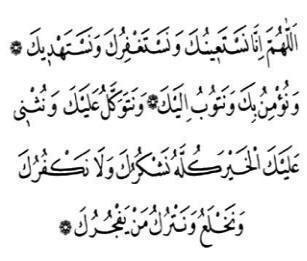 اَللّٰهُمَّ اِنَّا نَسْتَعِينُكَ وَنَسْتَغْفِرُكَ وَنَسْتَهْدِيكَ ۞
وَنُؤْمِنُ بِكَ وَنَتُوبُ اِلَيْكَ ۞ وَنَتَوَكَّلُ عَلَيْكَ وَنُثْنِى
عَلَيْكَ الْخَيْرَ كُلَّهُ نَشْكُرُكَ وَلَا نَكْفُرُكَ
وَنَخْلَعُ وَنَتْرُكُ مَنْ يَفْجُرُكَ ۞